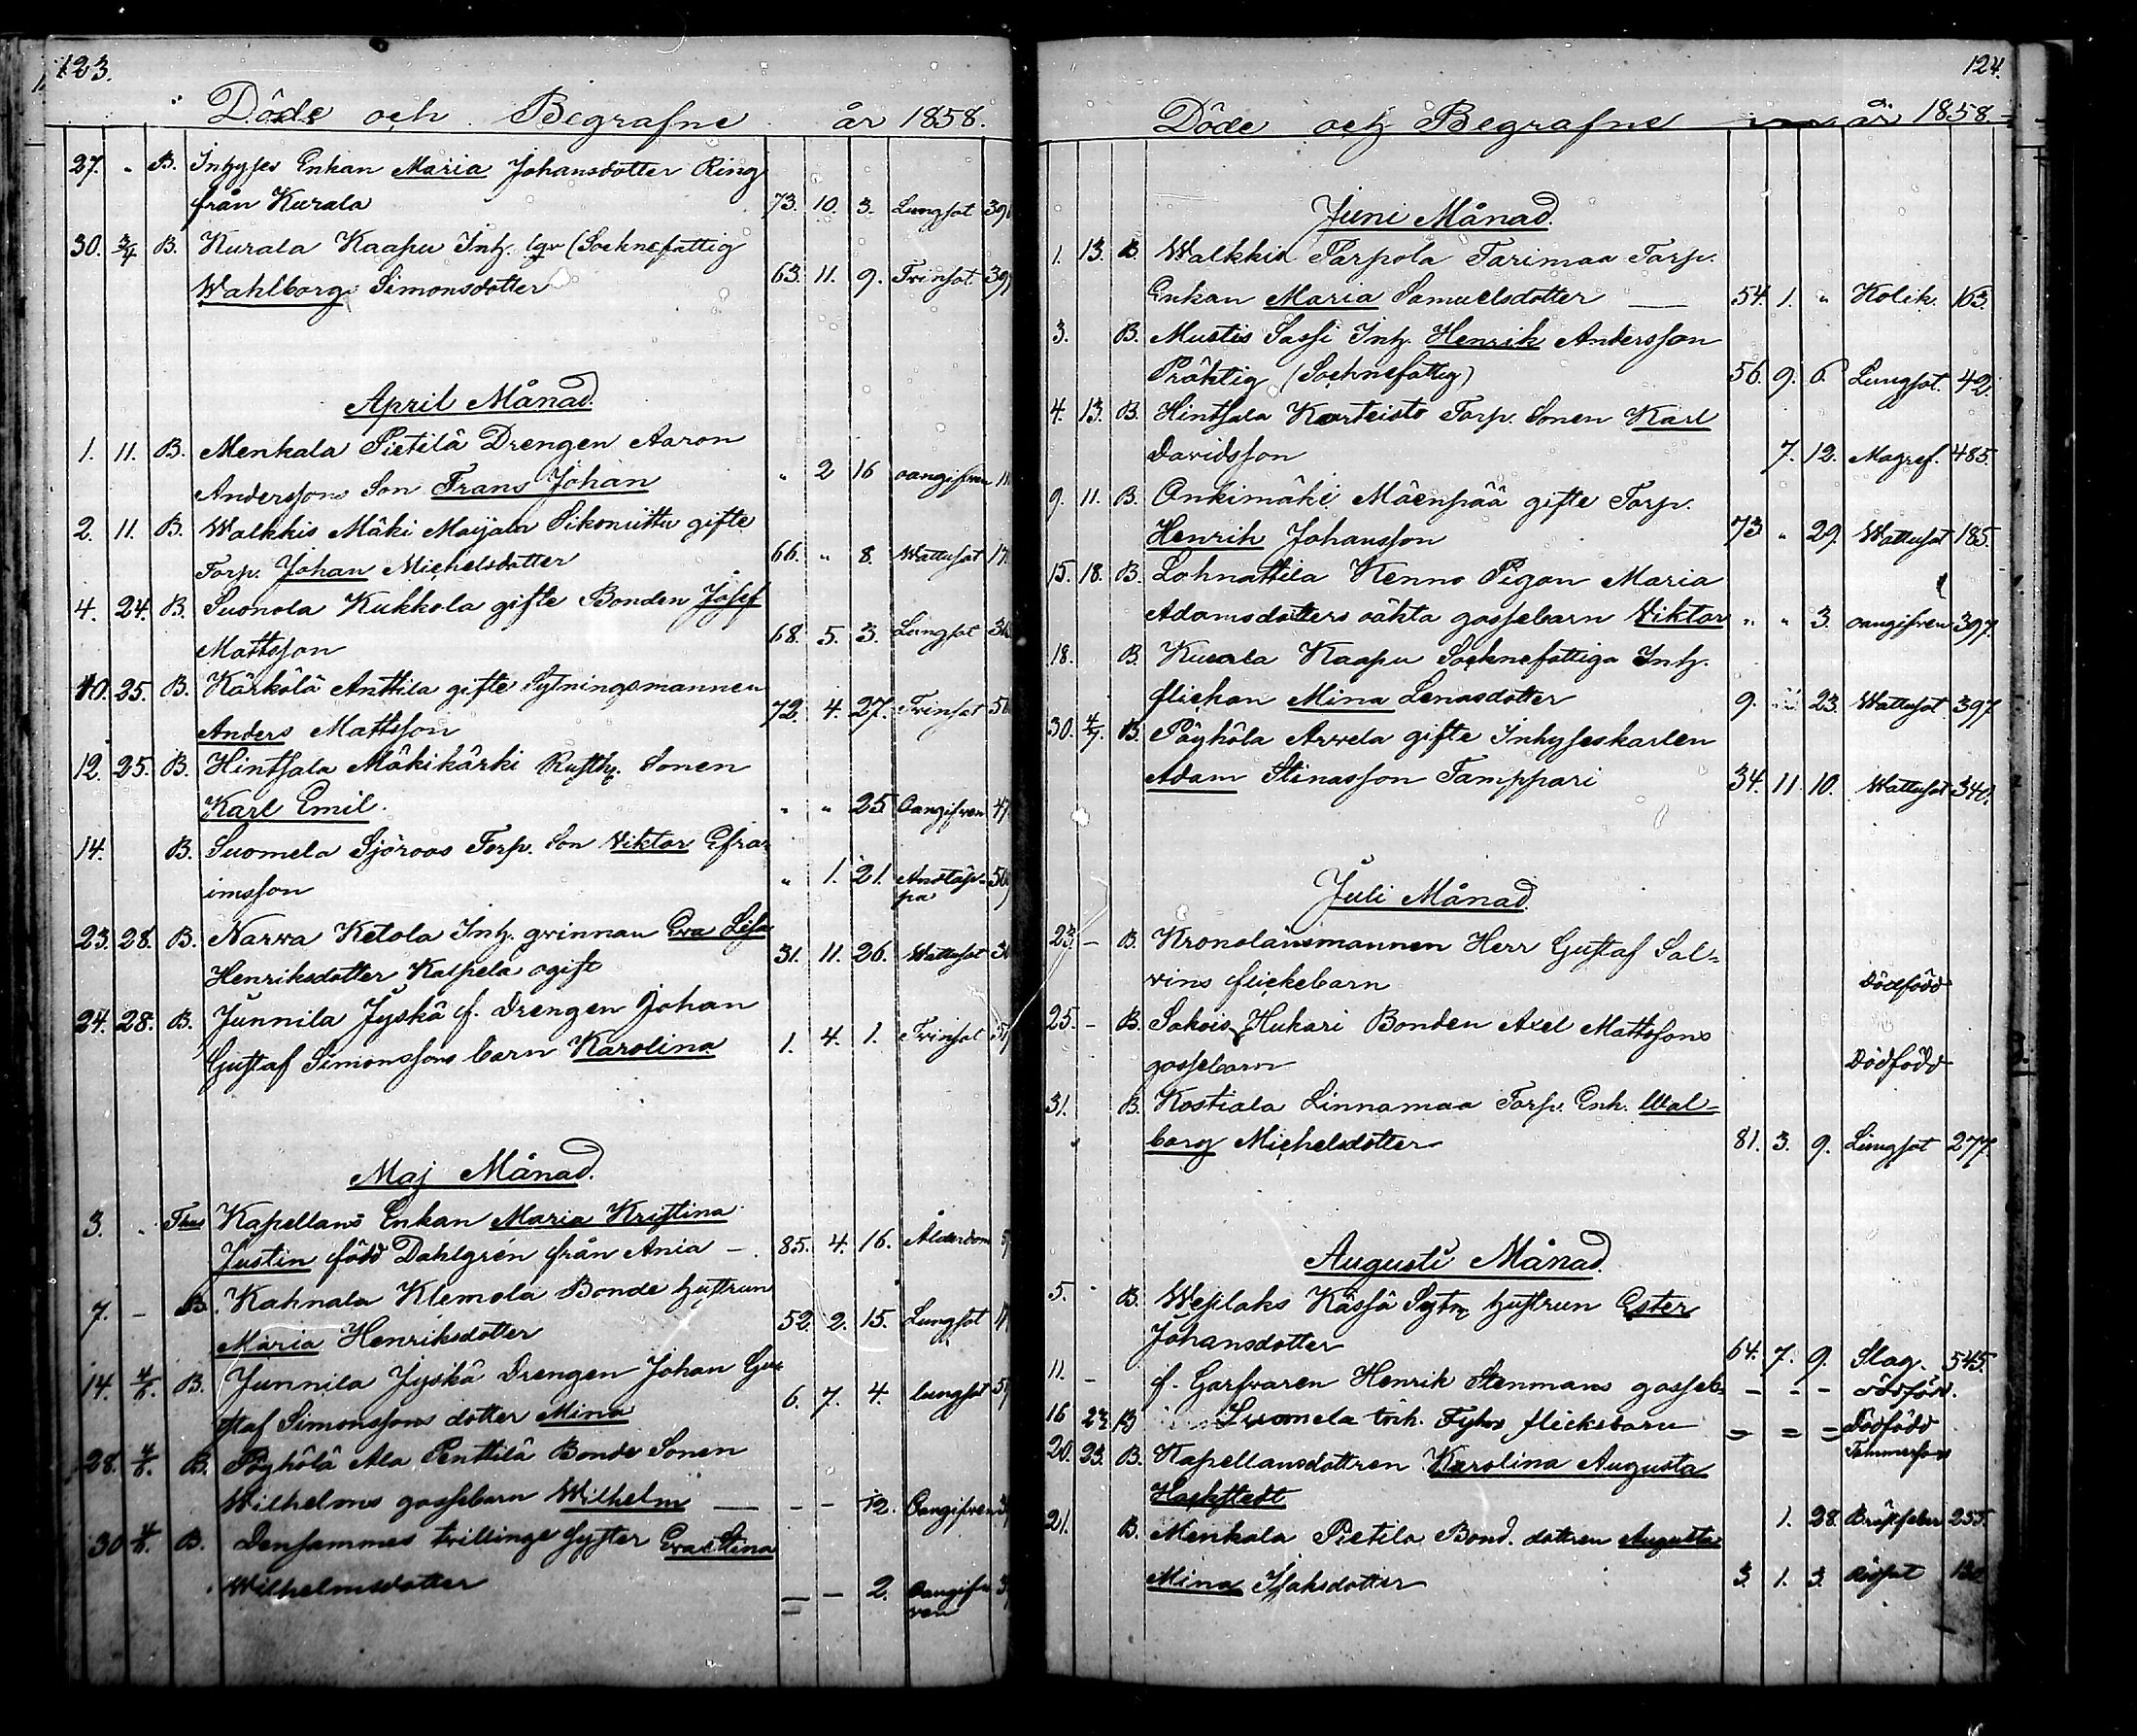 123.
Döde och Begrafne år 1858.
27. " B. Inhyses Enkan Maria Johansdotter Ring
från Kurala 73. 10. 3. Lungsot 39
30. 3/4 B. Kurala Kaapu Inh. (Socknefattig
Wahlborg Simonsdotter 63. 11. 9. Tvinsot 39
April Månad.
1. 11. B. Menkala Pietilä Drengen Aaron
Anderssons Son Frans Johan " 2 16 oangifven 11
2. 11. B. Walkkis Mäki Maijala Sikoniittu gifte
Torp. Johan Michelsdotter 66. " 8. Wattusot 17
4. 24. B. Suonola Kukkola gifte Bonden Josef
Mattsson 68. 5. 3. Lungsot 36
10. 25. B. Kärkölä Anttila gifte Sytningsmannen
Anders Mattsson 72. 4. 27. Tvinsot 56
12. 25. B. Hintsala Mäkikärki Rusth. Sonen
Karl Emil. " " 25 Oangifven 47
14. B. Suomela Sjöroos Torp. Son Viktor Efra-
imsson " 1. 21. Andtäp-
pa 50
23. 28. B. Narva Ketola Inh. qvinnan Eva Lisa
Henriksdotter Kalpela ogift 31. 11. 26. Wattusot 3
24. 28. B. Junnila Jyskä f. Drengen Johan
Gustaf Simonssons barn Karolina 1. 4. 1. Tvinsot 5
Maj Månad.
3. " Kapellans Enkan Maria Kristina
Justin född Dahlgrén från Ania - 85. 4. 16. Ålderdom
7. - B. Kahnala Klemola Bonde hustrun
Maria Henriksdotter 52. 2. 15. Lungsot
14. 4/6. B. Junnila Jyskä Drengen Johan Gu-
staf Simonssons dotter Mina 6. 7. 4. lungsot 5
28. 4/6. B. Pöyhölä Ala Penttilä Bonde Sonen
Wilhelms gossebarn Wilhelm — - - 12. Oangifven 3
30 4/6. B. Densammes tvillinge syster Eva Stina
Wilhelmsdotter — - 2. Oangif-
ven 3
124.
Döde och Begrafne år 1858
Juni Månad.
1. 13. B. Walkkis Parpola Tarimaa Torp.
Enkan Maria Samuelsdotter — 54. 1. " Kolik. 163
3. B. Mustis Sassi Inh. Henrik Andersson
Präktig (Socknefattig) 56. 9. 6. Lungsot. 42.
4. 13. B. Hintsala Karteisto Torp. Sonen Karl
Davidsson 7. 12. Magref. 485.
9. 11. B. Onkimäki Mäenpää gifte Torp.
Henrik Johansson 73 " 29. Wattusot 185.
15. 18. B. Lohnattila Kenno Pigan Maria
Adamsdotters oäkta gossebarn Viktor " " 3. oangifven 397.
18. B. Kurala Kaapu Socknefattiga Inh.
flickan Mina Lenasdotter 9. " 23. Wattusot 397
30. 4/7. B. Pöyhölä Arvela gifte Inhyseskarlen
Adam Stinasson Tamppari 34. 11 10. Wattusot 340.
Juli Månad.
23. - B. Kronolänsmannen Herr Gustaf Sal-
vins flickebarn Dödfödd
25. - B. Sakois Hukari Bonden Axel Mattssons
gossebarn Dödfödd
31. B. Kostiala Linnamaa Torp. Enk. Wal-
borg Michelsdotter 81. 3. 9. Lungsot 277.
Augusti Månad.
5. - B. Weslaks Kässä Sytn. hustrun Ester
Johansdotter 64. 7. 9. Slag. 545.
11. - f. Garfvaren Henrik Stenmans gosseb. - - - dödföd.
16 23 B Suomela flickebarn = = = Dödfödd
20. 23. B. Kapellansdottren Karolina Augusta
1. 28. 255.
21. B. Menkala Pietila Bond. dottren Augusta
Mina Isaksdotter 3. 1. 3. Rödsot